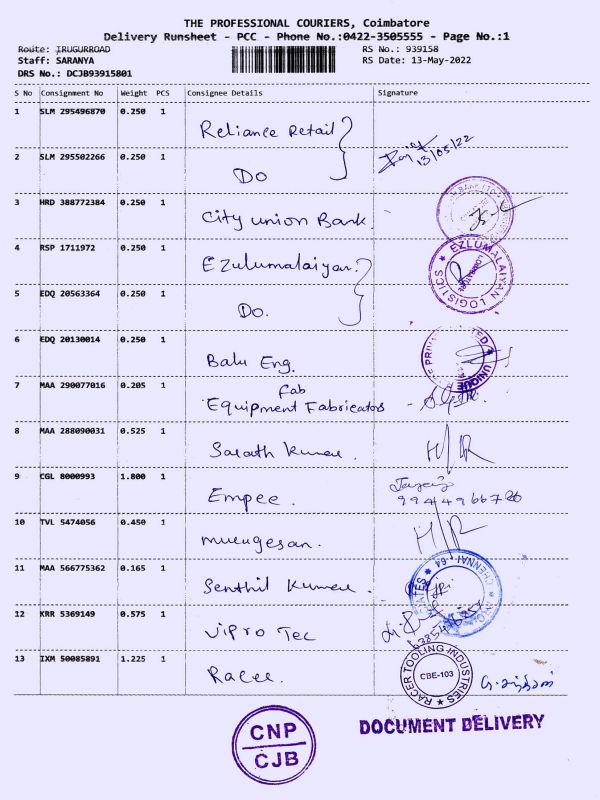 THE PROFESSIONAL COURIERS, Coimbatore
Delivery Runsheet - PCC - Phone No.:0422-3505555 - Page No.:1
Route: IRUGURROAD
Staff: SARANYA
DRS No.: DCJB93915801
RS No.: 939158
RS Date: 13-May-2022
S No Consignment No Weight PCS Consignee Details Signature
1 SLM 295496870 0.250 1 Reliance Retail
2 SLM 295502266 0.250 1 Do 13/05/22
3 HRD 388772384 0.250 1 City union Bank.
4 RSP 1711972 0.250 1 Ezulumalaiyan. EZLUMALAIYAN LOGISTICS
5 EDQ 20563364 0.250 1 Do.
6 EDQ 20130014 0.250 1 Balu Eng. UNIQUE
7 MAA 290077016 0.205 1 Equipment Fabricators
fab
8 MAA 288090031 0.525 1 Sarath Kumar. H/R
9 CGL 8000993 1.800 1 Empee.
10 TVL 5474056 0.450 1 murugesan. H/R
11 MAA 566775362 0.165 1 Senthil Kumar. CHENNAI-64
12 KRR 5369149 0.575 1 Vipro Tec
13 IXM 50085891 1.225 1 Racer. RACER TOOLING INDUSTRIES CBE-103
CNP
CJB
DOCUMENT DELIVERY